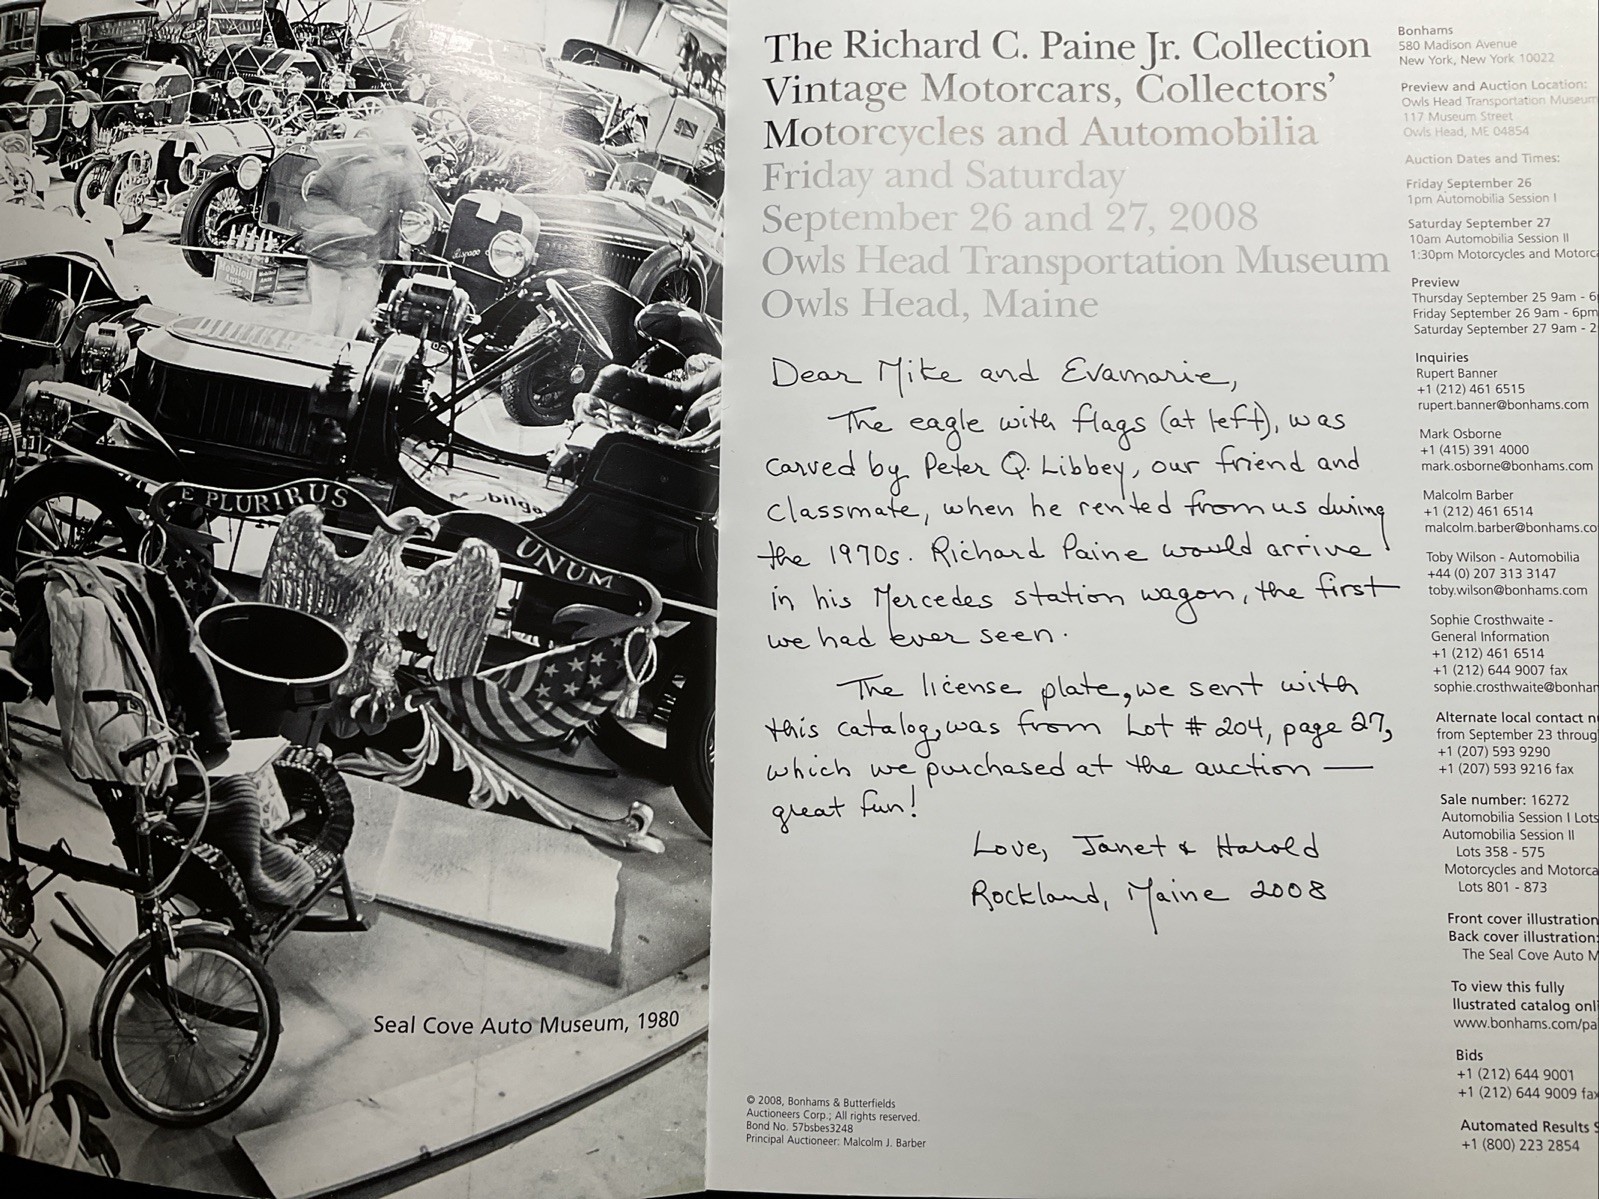 E PLURIBUS
UNUM
Mobiloil
Mobilgas
Seal Cove Auto Museum, 1980
The Richard C. Paine Jr. Collection
Vintage Motorcars, Collectors'
Motorcycles and Automobilia
Friday and Saturday
September 26 and 27, 2008
Owls Head Transportation Museum
Owls Head, Maine
Dear Mike and Evamarie,
The eagle with flags (at left), was
carved by Peter Q. Libbey, our friend and
classmate, when he rented from us during
the 1970s. Richard Paine would arrive
in his Mercedes station wagon, the first
we had ever seen.
The license plate, we sent with
this catalog, was from Lot # 204, page 27,
which we purchased at the auction —
great fun!
Love, Janet & Harold
Rockland, Maine 2008
© 2008, Bonhams & Butterfields
Auctioneers Corp.; All rights reserved.
Bond No. 57bsbes3248
Principal Auctioneer: Malcolm J. Barber
Bonhams
580 Madison Avenue
New York, New York 10022
Preview and Auction Location:
Owls Head Transportation Museum
117 Museum Street
Owls Head, ME 04854
Auction Dates and Times:
Friday September 26
1pm Automobilia Session I
Saturday September 27
10am Automobilia Session II
1:30pm Motorcycles and Motorca
Preview
Thursday September 25 9am - 6
Friday September 26 9am - 6pm
Saturday September 27 9am - 2
Inquiries
Rupert Banner
+1 (212) 461 6515
rupert.banner@bonhams.com
Mark Osborne
+1 (415) 391 4000
mark.osborne@bonhams.com
Malcolm Barber
+1 (212) 461 6514
malcolm.barber@bonhams.co
Toby Wilson - Automobilia
+44 (0) 207 313 3147
toby.wilson@bonhams.com
Sophie Crosthwaite -
General Information
+1 (212) 461 6514
+1 (212) 644 9007 fax
sophie.crosthwaite@bonhar
Alternate local contact n
from September 23 throug
+1 (207) 593 9290
+1 (207) 593 9216 fax
Sale number: 16272
Automobilia Session I Lots
Automobilia Session II
Lots 358 - 575
Motorcycles and Motorca
Lots 801 - 873
Front cover illustration
Back cover illustration:
The Seal Cove Auto M
To view this fully
llustrated catalog onli
www.bonhams.com/pa
Bids
+1 (212) 644 9001
+1 (212) 644 9009 fax
Automated Results S
+1 (800) 223 2854